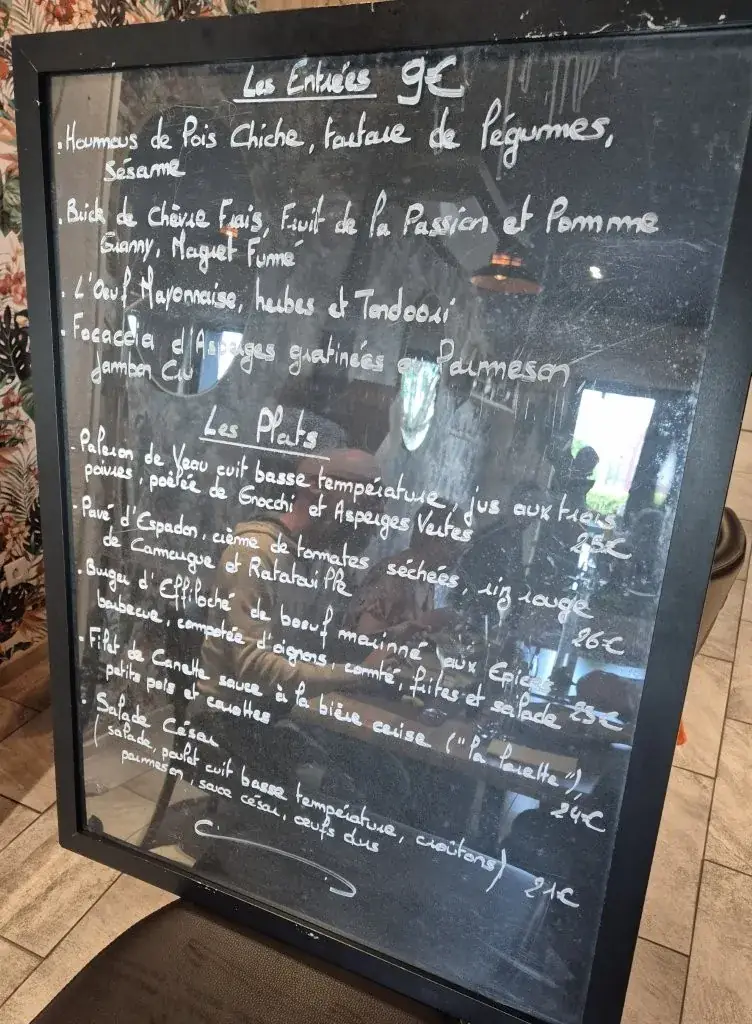 Les Entrées 9€
. Houmous de Pois Chiche, tartare de légumes,
Sésame
. Brick de Chèvre Frais, Fruit de la Passion et Pomme
Granny, Magret Fumé
. L'Oeuf Mayonnaise, herbes et Tandoori
. Focaccia d'Asperges gratinées au Parmesan
Jambon Cru
Les Plats
- Paleron de Veau cuit basse température, jus aux trois
poivres, poêlée de Gnocchi et Asperges Vertes 25€
- Pavé d'Espadon, crème de tomates séchées, riz rouge
de Camargue et Ratatouille 26€
. Burger d'Effiloché de boeuf mariné aux Epices
barbecue, compotée d'oignons, comté, frites et salade 23€
- Filet de Canette sauce à la bière cerise ("la
petits pois et carottes 24€
. Salade César
(salade, poulet cuit basse température, croûtons)
parmesan, sauce césar, oeufs durs 21€